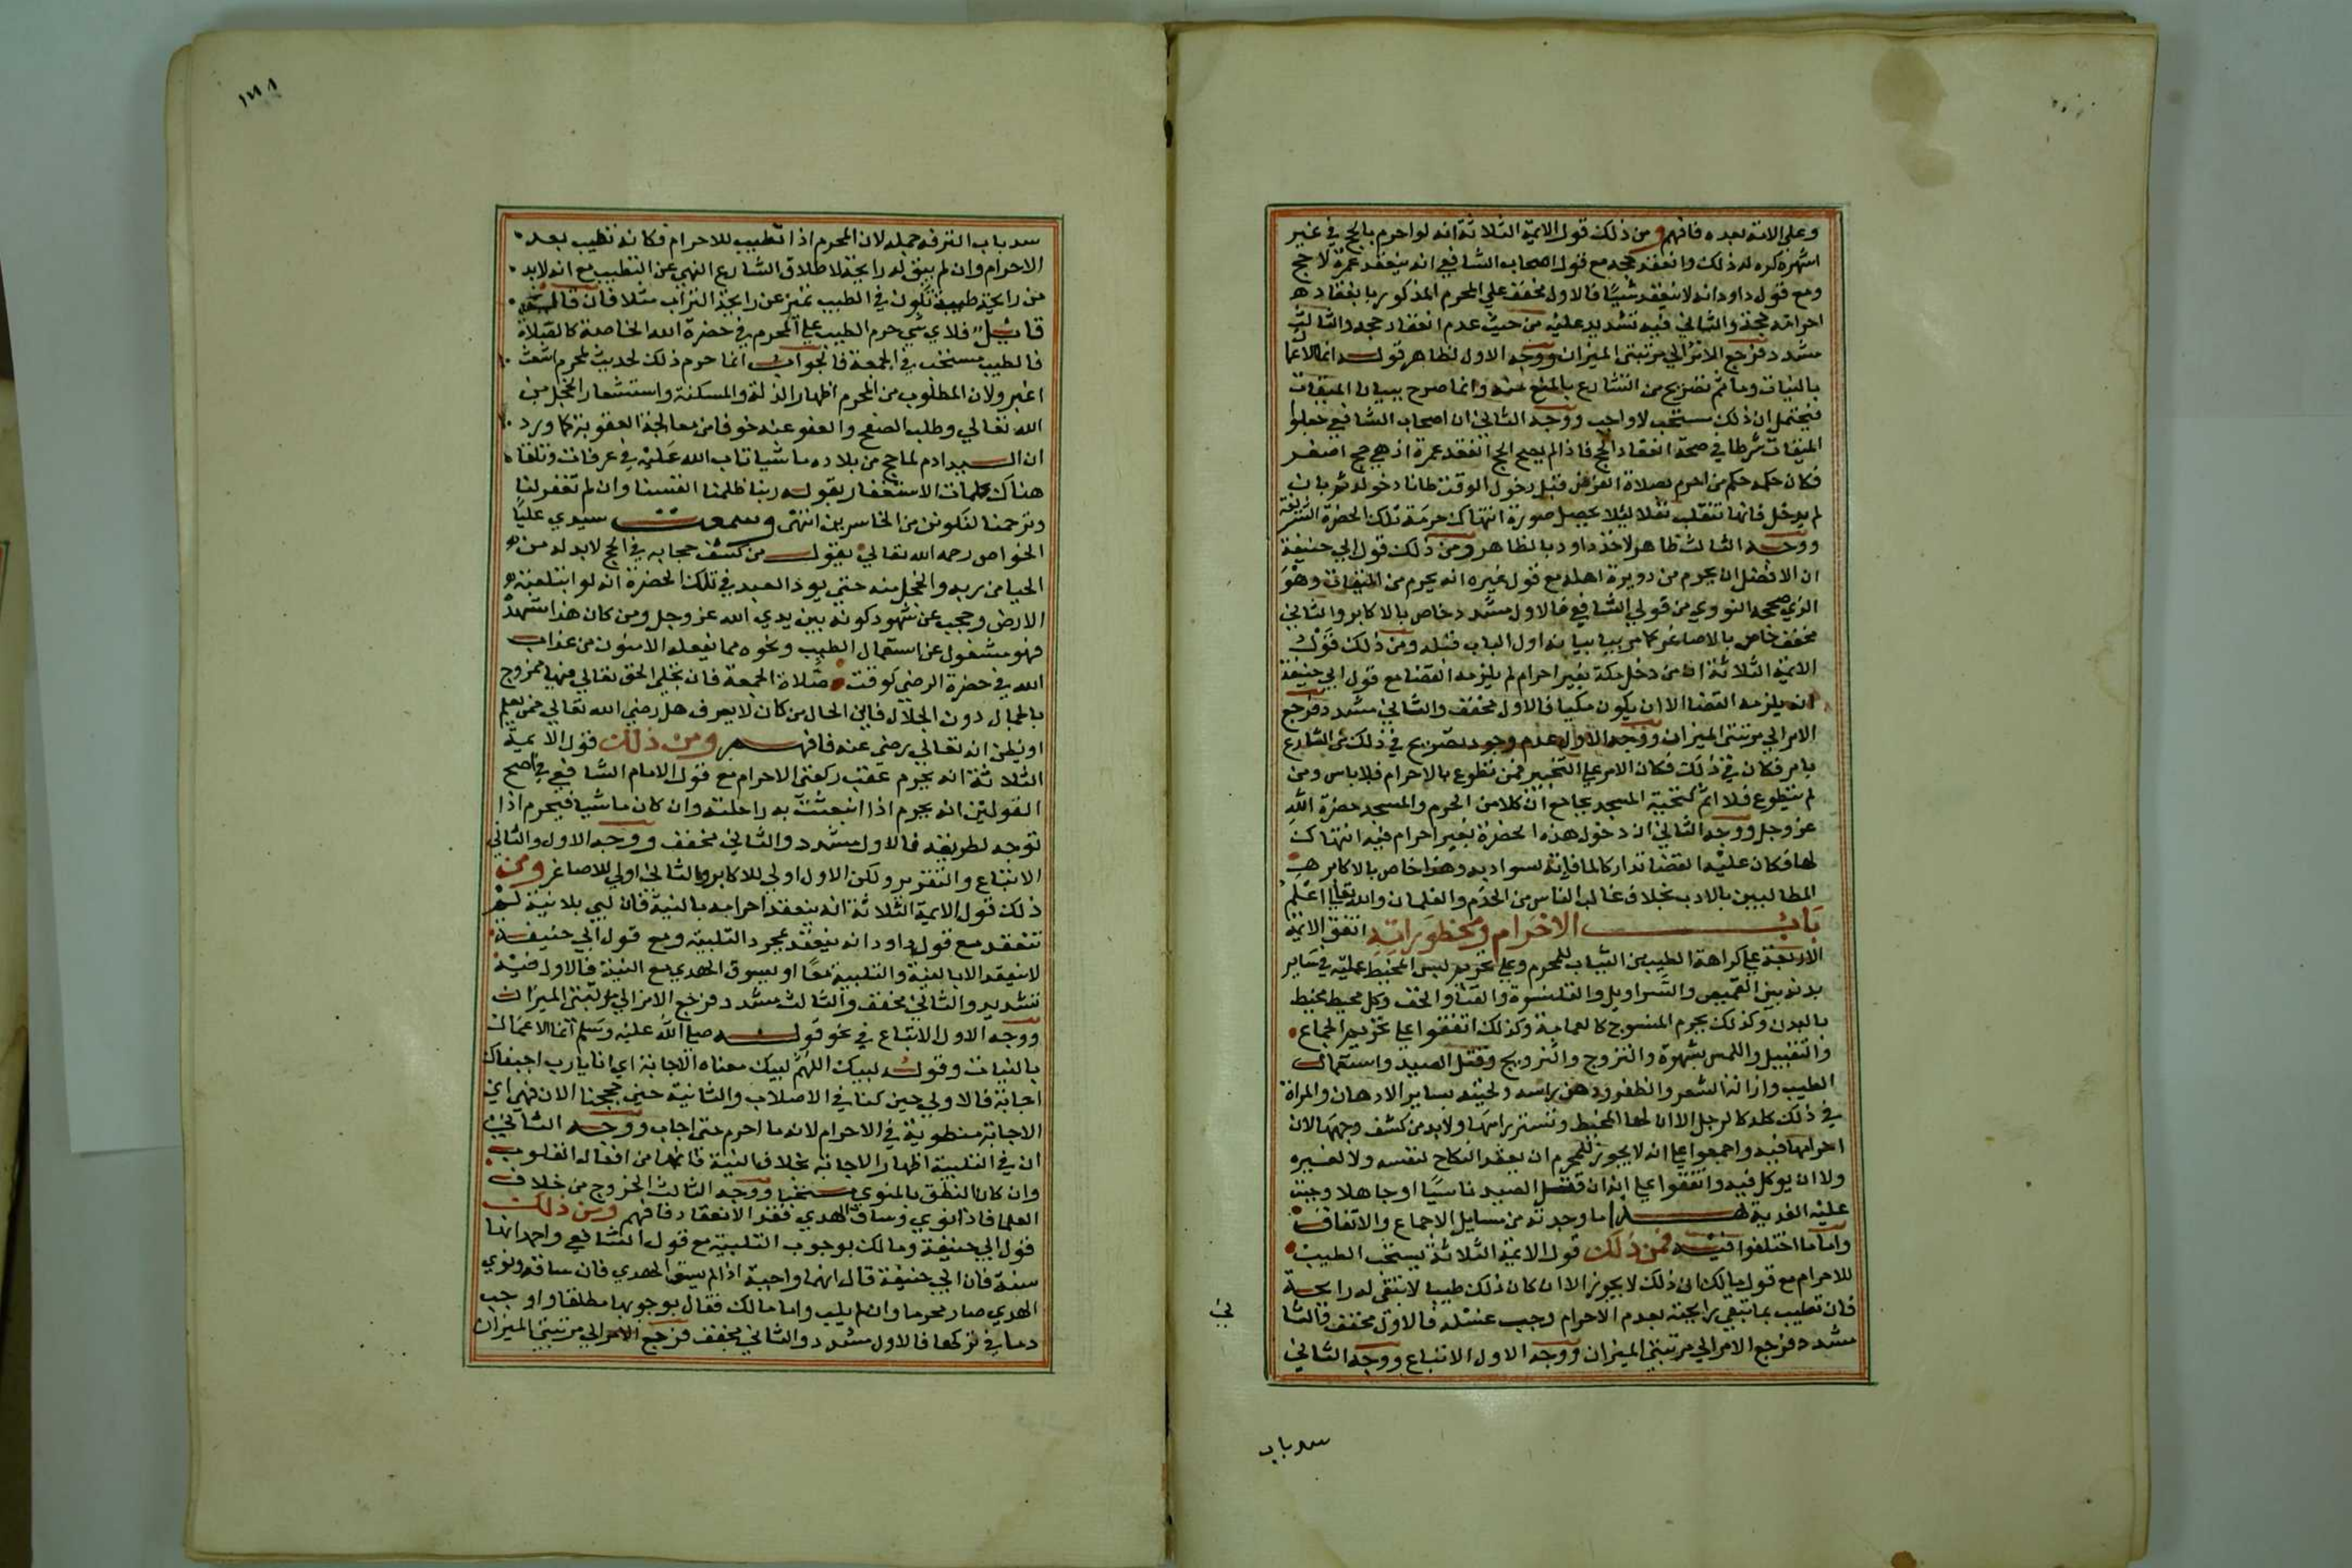 وعلي الامة بعده فافهم ومن ذلك قول الايمة الثلاثة انه لو احرم بالحج في غير
اشهره كره له ذلك وانعقد حجه مع قول اصحاب الشافعي انه ينعقد عمرة لا حج
ومع قول داود انه لا ينعقد شيئا فالاول مخفف علي المحرم المذكور بانعقاد
احرامه حجة والثاني فيه تشديد عليه من حيث عدم انعقاد حجه والثالث
مشدد فرجع الامر الي مرتبتي الميزان ووجه الاول لظاهر قوله انما الاعما
بالنيات وما ثم تصريح من الشارع بالمنع منه وانما صرح ببيان الميقات
فيحتمل ان ذلك مستحب لا واجب ووجه الثاني ان اصحاب الشافعي جعلوا
الميقات شرطا في صحة انعقاد الحج فاذا لم يصح الحج انعقد عمرة اذ هي حج اصغر
فكان حكمه حكم من احرم بصلاة الفرض قبل دخول الوقت ظانا دخوله ثم بان
لم يدخل فانها تنقلب نفلا ليلا يحصل صورة انتهاك حرمة تلك الحضرة الشريفة
ووجه الثالث ظاهر لاخذ داود بالظاهر ومن ذلك قول ابي حنيفة
ان الافضل ان يحرم من دويرة اهله مع قول غيره انه يحرم من الميقات وهو
الذي صححه النووي من قولي الشافعي فالاول مشدد خاص بالاكابر والثاني
مخفف خاص بالاصاغر كما مر بيانه اول الباب قبله ومن ذلك قول
الايمة الثلاثة ان من دخل مكة بغير احرام لم يلزمه القضا مع قول ابي حنيفة
انه يلزمه القضا الا ان يكون مكيا فالاول مخفف والثاني مشدد فرجع
الامر الي مرتبتي الميزان ووجه الاول عدم وجود تصريح في ذلك عن الشارع
بامر فكان في ذلك فكان الامر علي التخيير فمن تطوع بالاحرام فلا باس ومن
لم يتطوع فلا اثم كتحية المسجد بجامع ان كلا من الحرم والمسجد حضرة الله
عز وجل ووجه الثاني ان دخول هذه الحضرة بغير احرام فيه انتهاك
لها فكان عليه القضا تداركا لما فاته لسوا دبه وهذا خاص بالاكابر
المطالبين بالادب بخلاف غالب الناس من الخدم والغلمان والله تعالي اعلم
باب الاحرام ومحظوراته اتفق الايمة
الاربعة علي كراهة الطيب من الثياب للمحرم وعلي تحريم لبس المخيط عليه في ساير
بدنه بين القميص والسراويل والقلنسوة والقبا والخف وكل محيط مخيط
بالبدن وكذلك يحرم المنسوج كالعمامة وكذلك اتفقوا علي تحريم الجماع
والتقبيل واللمس بشهوة والتزوج والتزويج وقتل الصيد واستعمال
الطيب وازالة الشعر والظفر ودهن راسه ولحيته بساير الادهان والمراة
في ذلك كله كالرجل الا ان لها المخيط وتستر راسها ولا بد من كشف وجهها لان
احرامها فيه واجمعوا علي انه لا يجوز للمحرم ان يعقد النكاح لنفسه ولا لغيره
ولا ان يوكل فيه واتفقوا علي انه ان قتل الصيد ناسيا او جاهلا وجبت
عليه الفدية هذا ما وجدته من مسايل الاجماع والاتفاق
واما ما اختلفوا فيه فمن ذلك قول الايمة الثلاثة يستحب الطيب
للاحرام مع قول مالك ان ذلك لا يجوز الا ان كان ذلك طيبا لا تبقي له رايحة
فان تطيب بما تبقي رايحته بعد الاحرام وجب غسله فالاول مخفف والثا
مشدد فرجع الامر الي مرتبتي الميزان ووجه الاول الاتباع ووجه الثاني
ني
سد باب
١٦٨
سد باب الترفه جملة لان المحرم اذا تطيب للاحرام فكانه تطيب بعد
الاحرام وان لم يبق له رايحة لاطلاق الشارع النهي عن التطيب مع انه لا بد
من رايحة طيبة تكون في الطيب تميز عن رايحة التراب مثلا فان قال
قايل فلاي شي حرم الطيب علي المحرم في حضرة الله الخاصة كالصلاة
فالطيب مستحب في الجمعة فالجواب انما حرم ذلك لحديث المحرم اشعث
اغبر ولان المطلوب من المحرم اظهار الذلة والمسكنة واستشعار الخجل من
الله تعالي وطلب الصفح والعفو عنه خوفا من معالجة العقوبة كما ورد
ان السيد ادم لما حج من بلاده ماشيا تاب الله عليه في عرفات وتلقا
هناك كلمات الاستغفار بقوله ربنا ظلمنا انفسنا وان لم تغفر لنا
وترحمنا لنكونن من الخاسرين انتهي وسمعت سيدي عليا
الخواص رحمه الله تعالي يقول من كشف حجابه في الحج لا بد له من
الحيا من ربه والخجل منه حتي يود العبد في تلك الحضرة انه لو ابتلعته
الارض وحجب عن شهود كونه بين يدي الله عز وجل ومن كان هذا مشهده
فهو مشغول عن استعمال الطيب ونحوه مما يفعله الامنون من عذاب
الله في حضرة الرضي كوقت صلاة الجمعة فان تجلي الحق تعالي فيها ممزوج
بالجمال دون الجلال فاين الحال من كان لا يعرف هل رضي الله تعالي عمن يعلم
او يظن انه تعالي رضي عنه فافهم ومن ذلك قول الايمة
الثلاثة انه يحرم عقب ركعتي الاحرام مع قول الامام الشافعي في اصح
القولين انه يحرم اذا انبعثت به راحلته وان كان ماشيا فيحرم اذا
توجه لطريقه فالاول مشدد والثاني مخفف ووجه الاول والثاني
الاتباع والتقرير ولكن الاول اولي للاكابر والثاني اولي للاصاغر ومن
ذلك قول الايمة الثلاثة انه ينعقد احرامه بالنية فان لبي بلا نية لم
تنعقد مع قول داود انه ينعقد بمجرد التلبية ومع قول ابي حنيفة
لا ينعقد الا بالنية والتلبية معا او بسوق الهدي مع النية فالاول فيه
تشديد والثاني مخفف والثالث مشدد فرجع الامر الي مرتبتي الميزان
ووجه الاول الاتباع في نحو قوله صلي الله عليه وسلم انما الاعمال
بالنيات وقوله لبيك اللهم لبيك معناه الاجابة اي انا يا رب اجبناك
اجابة فالاولي حين كنا في الاصلاب والثانية حين حججنا الان فهي اي
الاجابة منطوية في الاحرام لانه ما احرم حتي اجاب ووجه الثاني
ان في التلبية اظهار الاجابة بخلاف النية فانها من افعال القلوب
وان كان النطق بالمنوي مستحبا ووجه الثالث الخروج من خلاف
العلما فاذا نوي وساق الهدي فقد الانعقاد فافهم ومن ذلك
قول ابي حنيفة ومالك بوجوب التلبية مع قول الشافعي واحمد انها
سنة فان ابي حنيفة قال انها واجبة اذا لم يسق الهدي فان ساقه ونوي
الهدي صار محرما وان لم يلب واما مالك فقال بوجوبها مطلقا واوجب
دما في تركها فالاول مشدد والثاني مخفف فرجع الامر الي مرتبتي الميزان